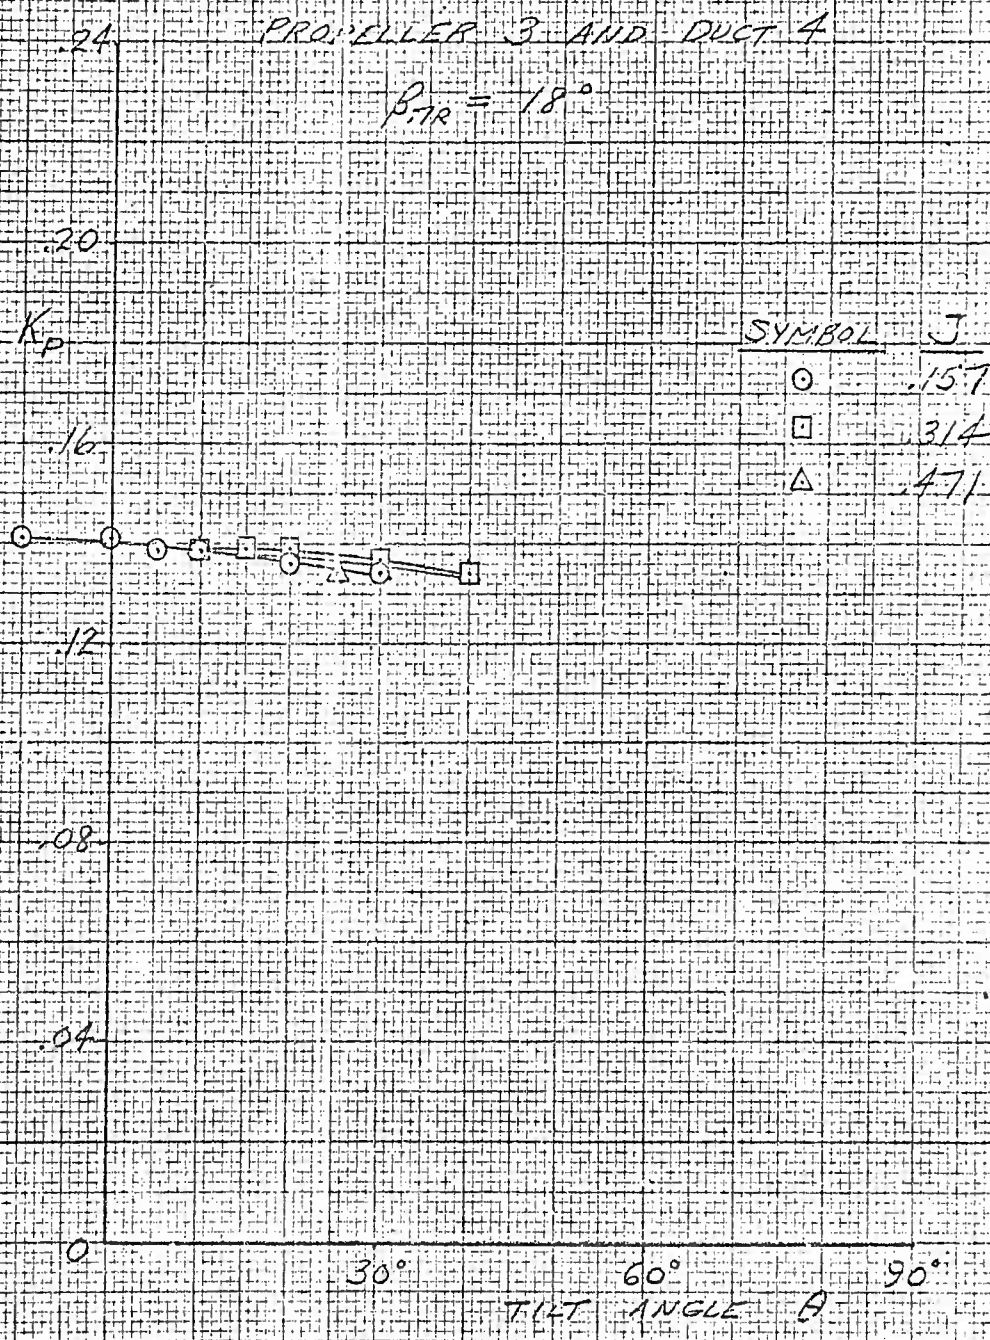 PROPELLER 3 AND DUCT 4
β.7R = 18°
.24
.20
Kp
.16
.12
.08
.04
0
SYMBOL J
.157
.314
.471
30° 60° 90°
TILT ANGLE θ